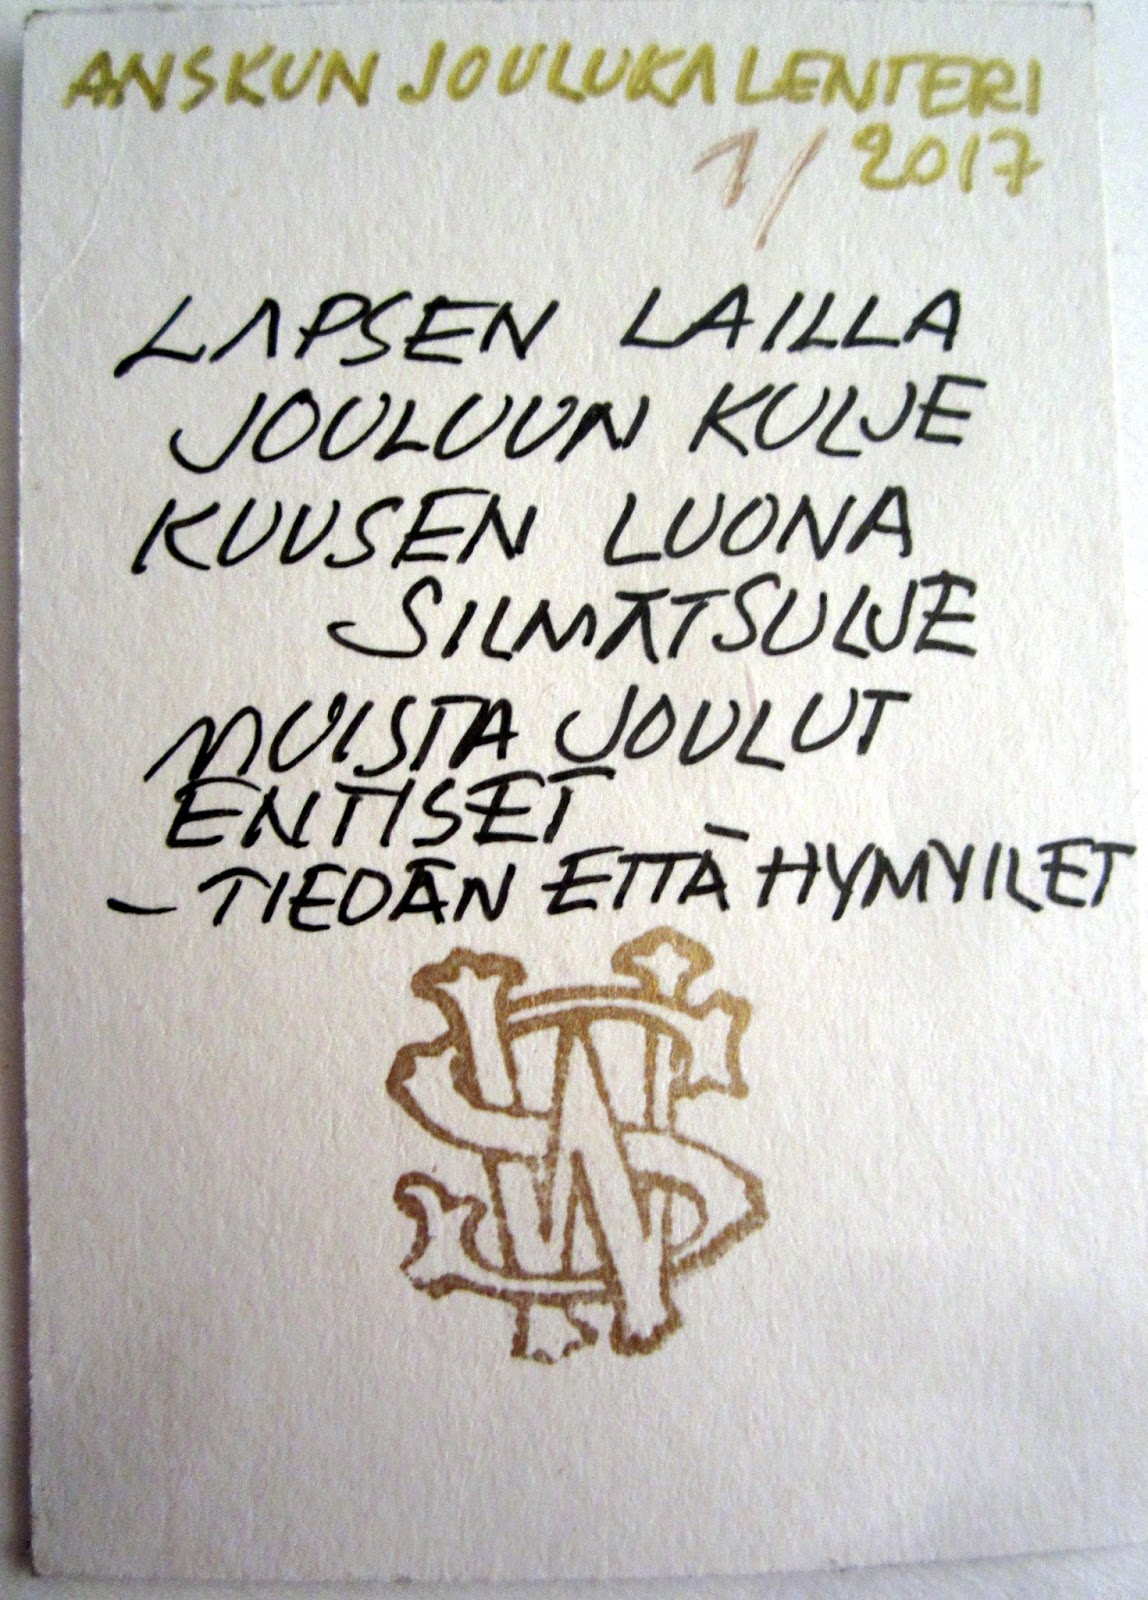 ANSKUN JOULUKALENTERI
1/2017
LAPSEN LAILLA
JOULUUN KULJE
KUUSEN LUONA
SILMÄT SULJE
MUISTA JOULUT
ENTISET
– TIEDÄN ETTÄ HYMYILET